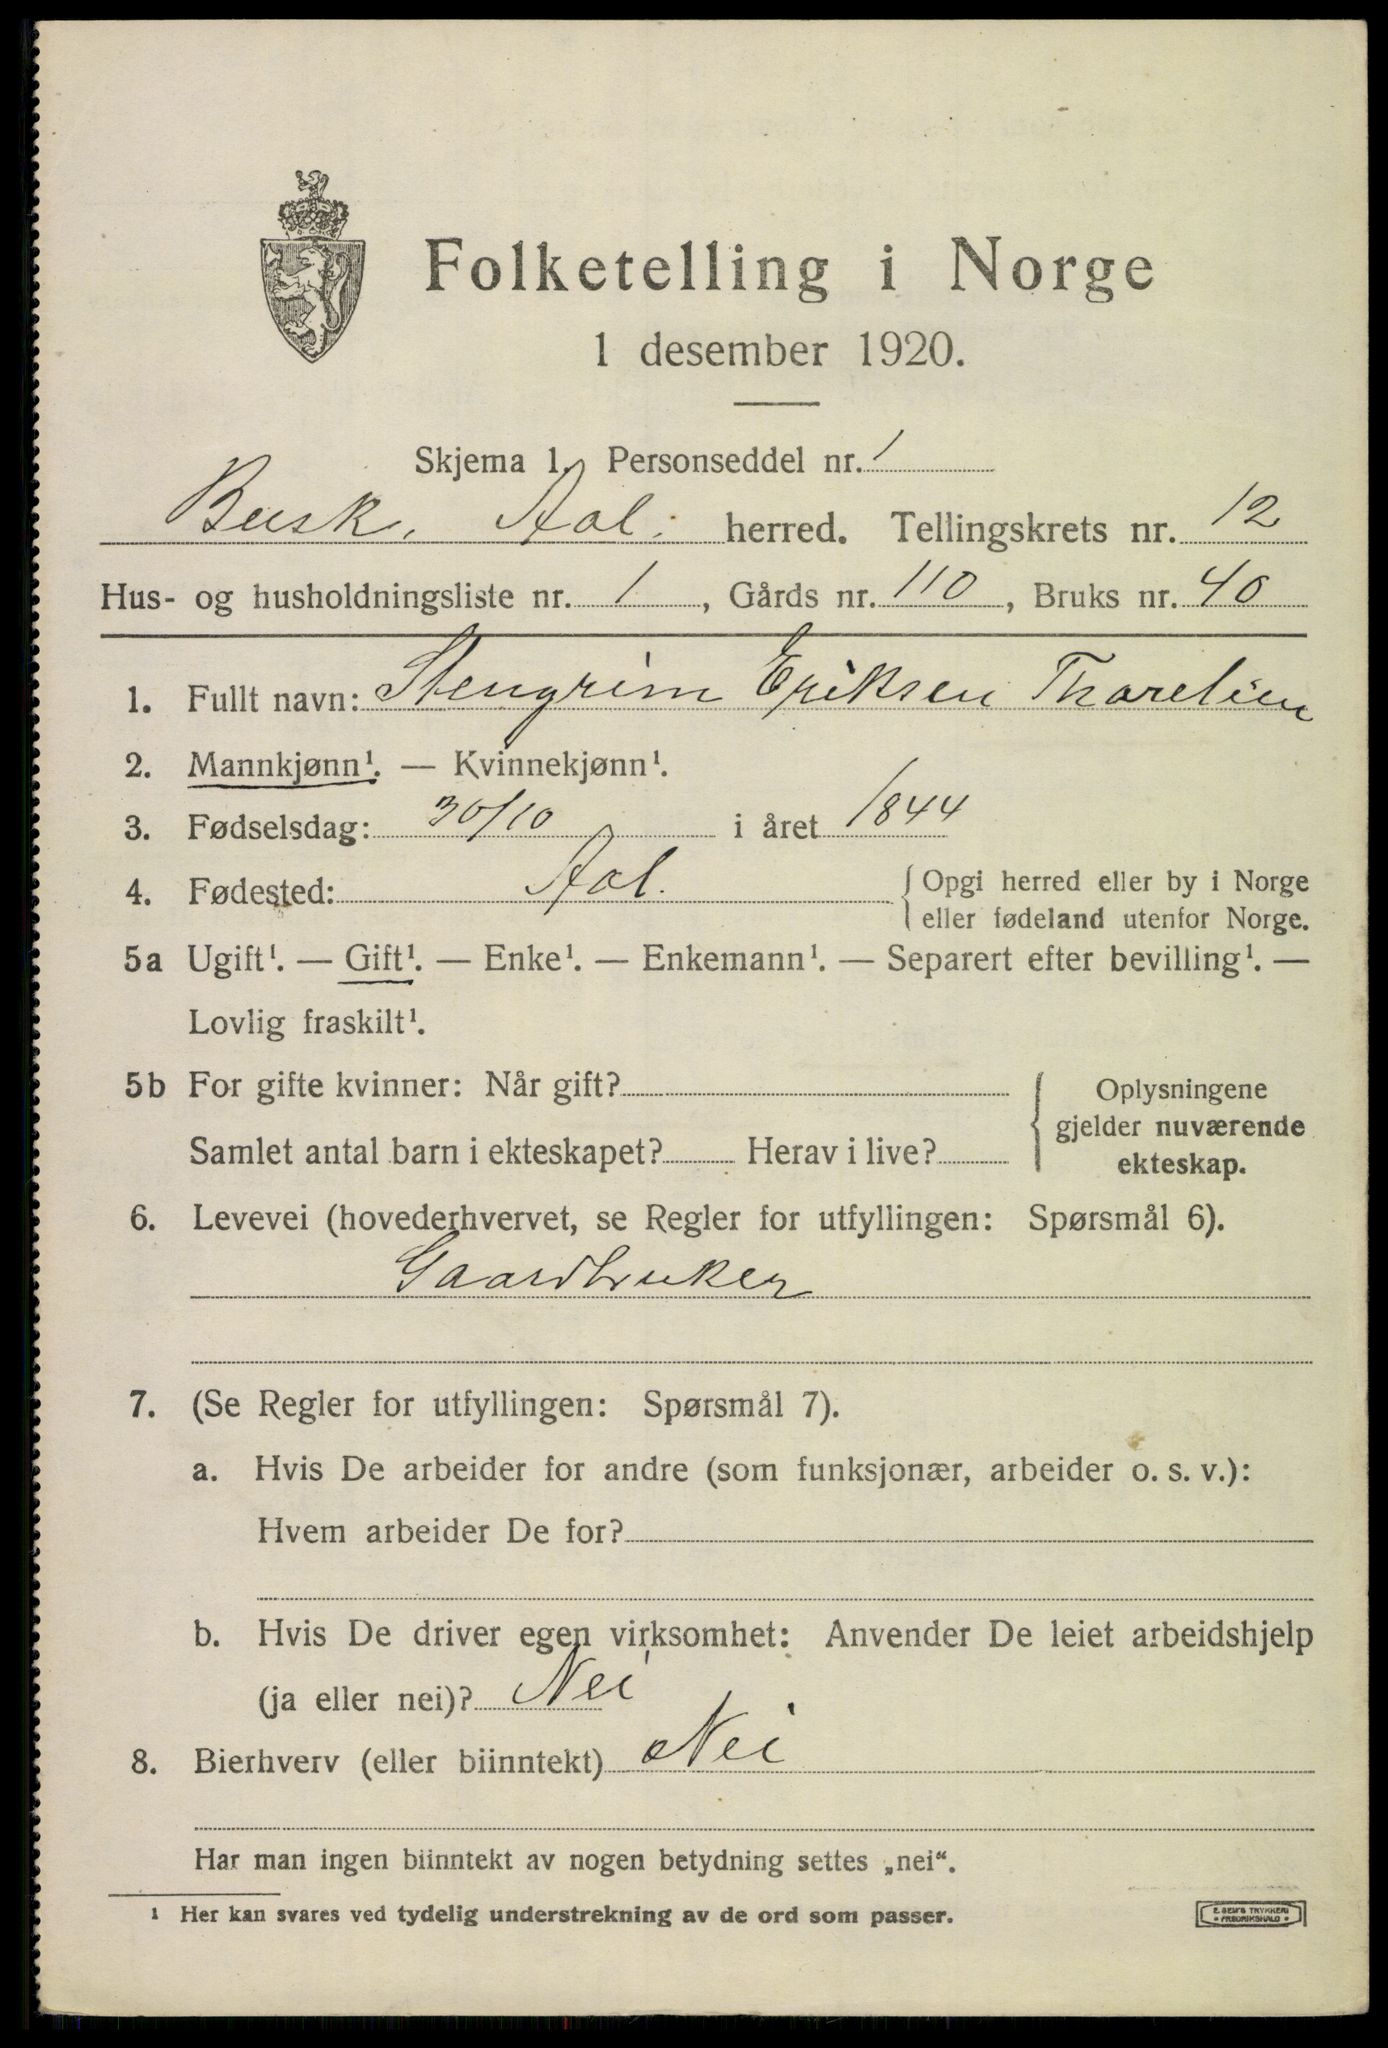 Folketelling i Norge
1 desember 1920.
Skjema 1. Personseddel nr. 1
Busk. Aal. herred. Tellingskrets nr. 12
Hus- og husholdningsliste nr. 1, Gårds nr. 110, Bruks nr. 40
1. Fullt navn: Stengrim Eriksen Thorelien
2. Mannkjønn¹. — Kvinnekjønn¹.
3. Fødselsdag: 30/10 i året 1844
4. Fødested: Aal. { Opgi herred eller by i Norge
eller fødeland utenfor Norge.
5a Ugift¹. — Gift¹. — Enke¹. — Enkemann¹. — Separert efter bevilling¹. —
Lovlig fraskilt¹.
5b For gifte kvinner: Når gift? { Oplysningene
gjelder nuværende
Samlet antal barn i ekteskapet? Herav i live? ekteskap.
6. Levevei (hovederhvervet, se Regler for utfyllingen: Spørsmål 6).
Gaardbruker
7. (Se Regler for utfyllingen: Spørsmål 7).
a. Hvis De arbeider for andre (som funksjonær, arbeider o. s. v.):
Hvem arbeider De for?
b. Hvis De driver egen virksomhet: Anvender De leiet arbeidshjelp
(ja eller nei)? Nei
8. Bierhverv (eller biinntekt) Nei
Har man ingen biinntekt av nogen betydning settes „nei“.
¹ Her kan svares ved tydelig understrekning av de ord som passer.
E. SEM'S TRYKKERI
• FREDRIKSHALD •